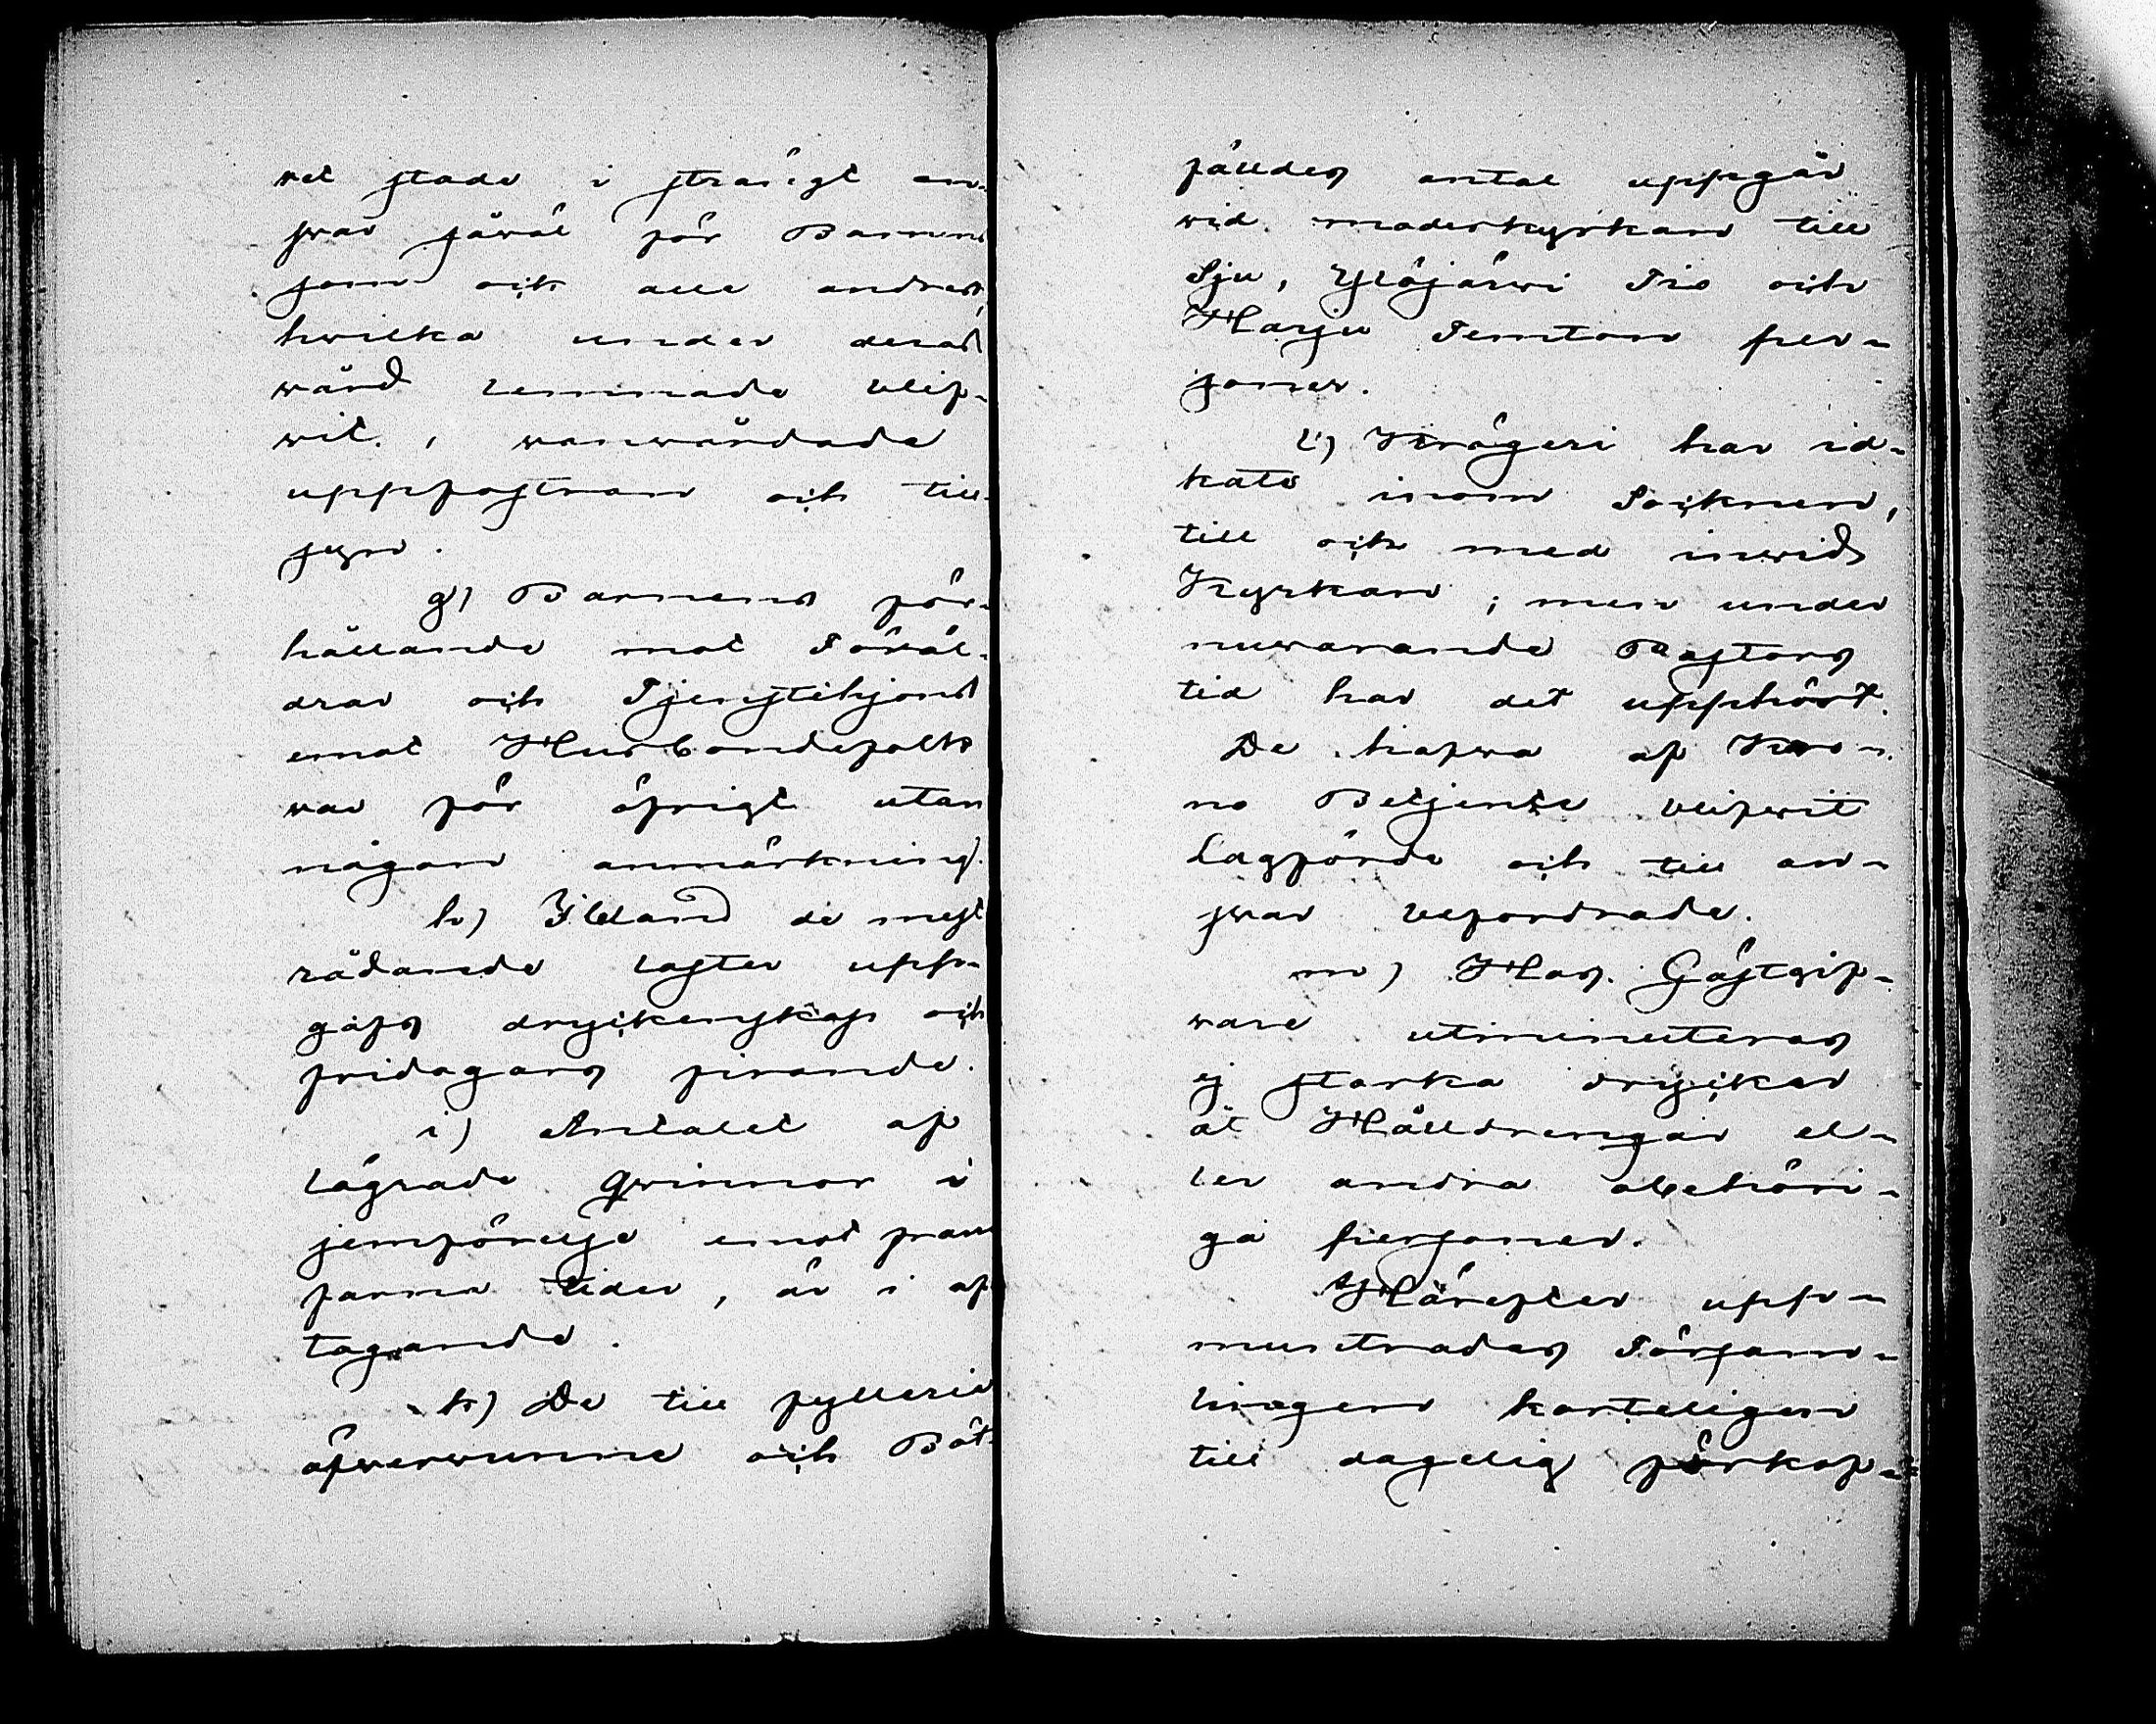 ret stade i strängt an-
svar såväl för Barnen
som och alla andras,
hwilka under deras
wård lemnade blif-
wit, wanwårdade
uppfostran och till-
syn.
g) Barnens för-
hållande mot Föräl-
drar och Tjenstehjons
emot Husbondefolk
var för öfrigt utan
någon anmärkning.
h) Ibland de mest
rådande laster upp-
gafs dryckenskap och
fridagars firande.
i) Antalet af
lägrade Qwinnor i
jemförelse emot fram
farna tider, är i af
tagande.
k) De till fylleri
öfwerwunne och Böt-
fälldes antal uppgår
wid moderkyrkan till
Sju, Ylöjärwi Tio och
Harju Femton per-
soner.
l) Krögeri har id-
kats inom Socknen,
till och med inwid
Kyrkan; men under
nuwarande Pastors
tid har det upphört.
De hafwa af Kro-
no Betjente blifwit
lagförde och till an-
svar befordrade.
m) Hos Gästgif-
vare utminuteras
ej starka drycker
åt Hålldrengar el-
ler andra obehöri-
ga personer.
Härefter upp-
muntrades Försam-
lingen korteligen
till daglig förkof-